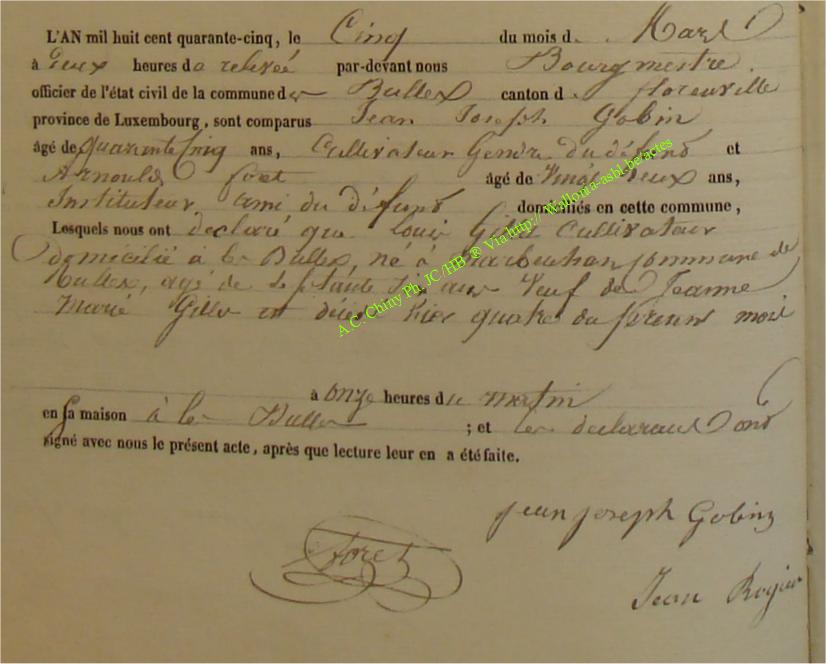 L'AN mil huit cent quarante-cinq, le Cinq du mois d. Mars
à Deux heures de relevée par-devant nous Bourgmestre
officier de l'état civil de la commune de Bulles canton d. florenville
province de Luxembourg, sont comparus Jean Joseph Gobin
âgé de quarante Cinq ans, Cultivateur Gendre du défunt et
Arnould foret âgé de Vingt deux ans,
Instituteur, ami du défunt domiciliés en cette commune,
Lesquels nous ont declaré que Louis Gille Cultivateur
domicilié à les Bulles, né à commune de
agé de ans Veuf de Jeanne
Marie Gille est décédé hier quatre du présent mois
à onze heures du matin
en sa maison à les Bulles ; et les declarans ont
signé avec nous le présent acte, après que lecture leur en a été faite.
Jean joseph Gobin
foret
Jean Rogier
A.C. Chiny Ph. JC /HB ® Via http:// Wallonia-asbl.be/actes